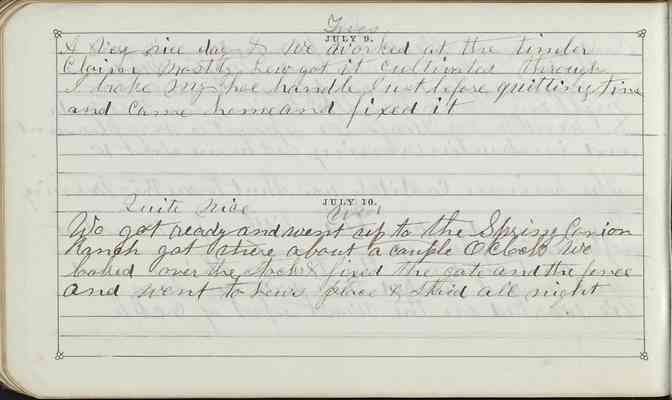 Tues
JULY 9.
A Very nice day & We worked at the timber
Claim Mostly hew got it cultivated through
I brake My hoe handle Just before quitting time
and Came home and fixed it
JULY 10.
Quite Nice Wed
We got ready and went up to the Spring Canion
Ranch got there about a couple OClock We
looked over the stock & fixed the gate and the fence
and went to Lew's place & staid all night